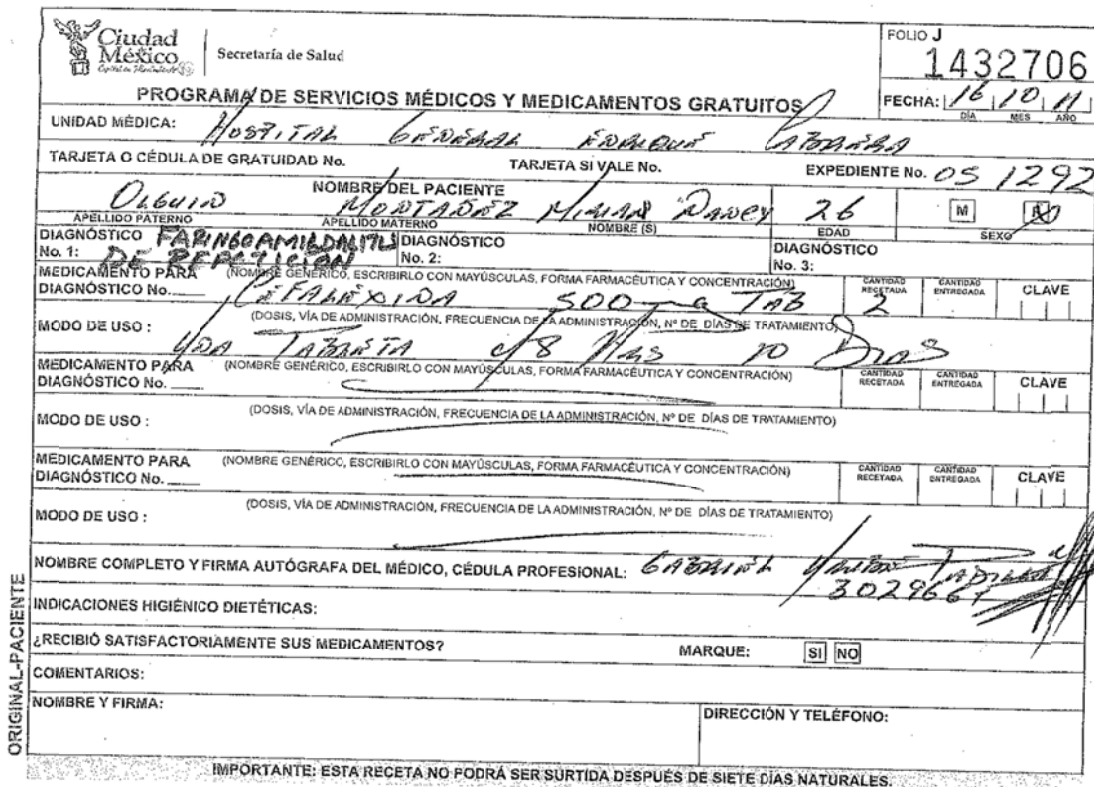 Ciudad
México
Capital en Movimiento
Secretaría de Salud
FOLIO J
1432706
PROGRAMA DE SERVICIOS MÉDICOS Y MEDICAMENTOS GRATUITOS
FECHA: 16 10 11
DÍA MES AÑO
UNIDAD MÉDICA: HOSPITAL GENERAL ENRIQUE CABRERA
TARJETA O CÉDULA DE GRATUIDAD No. TARJETA SI VALE No. EXPEDIENTE No. OS 1292
NOMBRE DEL PACIENTE
OLGUIN MONTAÑEZ MIRIAN DANCY 26 M F
APELLIDO PATERNO APELLIDO MATERNO NOMBRE (S) EDAD SEXO
DIAGNÓSTICO No. 1: FARINGOAMIGDALITIS DE REPETICION
DIAGNÓSTICO No. 2:
DIAGNÓSTICO No. 3:
MEDICAMENTO PARA DIAGNÓSTICO No. (NOMBRE GENÉRICO, ESCRIBIRLO CON MAYÚSCULAS, FORMA FARMACÉUTICA Y CONCENTRACIÓN) CANTIDAD RECETADA CANTIDAD ENTREGADA CLAVE
CEFALEXINA 500 mg TAB 2
MODO DE USO : (DOSIS, VÍA DE ADMINISTRACIÓN, FRECUENCIA DE LA ADMINISTRACIÓN, Nº DE DÍAS DE TRATAMIENTO)
UNA TABLETA c/8 HRS 10 DIAS
MEDICAMENTO PARA DIAGNÓSTICO No. (NOMBRE GENÉRICO, ESCRIBIRLO CON MAYÚSCULAS, FORMA FARMACÉUTICA Y CONCENTRACIÓN) CANTIDAD RECETADA CANTIDAD ENTREGADA CLAVE
MODO DE USO : (DOSIS, VÍA DE ADMINISTRACIÓN, FRECUENCIA DE LA ADMINISTRACIÓN, Nº DE DÍAS DE TRATAMIENTO)
MEDICAMENTO PARA DIAGNÓSTICO No. (NOMBRE GENÉRICO, ESCRIBIRLO CON MAYÚSCULAS, FORMA FARMACÉUTICA Y CONCENTRACIÓN) CANTIDAD RECETADA CANTIDAD ENTREGADA CLAVE
MODO DE USO : (DOSIS, VÍA DE ADMINISTRACIÓN, FRECUENCIA DE LA ADMINISTRACIÓN, Nº DE DÍAS DE TRATAMIENTO)
NOMBRE COMPLETO Y FIRMA AUTÓGRAFA DEL MÉDICO, CÉDULA PROFESIONAL: GABRIEL PADILLA
3029667
INDICACIONES HIGIÉNICO DIETÉTICAS:
¿RECIBIÓ SATISFACTORIAMENTE SUS MEDICAMENTOS? MARQUE: SI NO
COMENTARIOS:
NOMBRE Y FIRMA:
DIRECCIÓN Y TELÉFONO:
ORIGINAL-PACIENTE
IMPORTANTE: ESTA RECETA NO PODRÁ SER SURTIDA DESPUÉS DE SIETE DÍAS NATURALES.